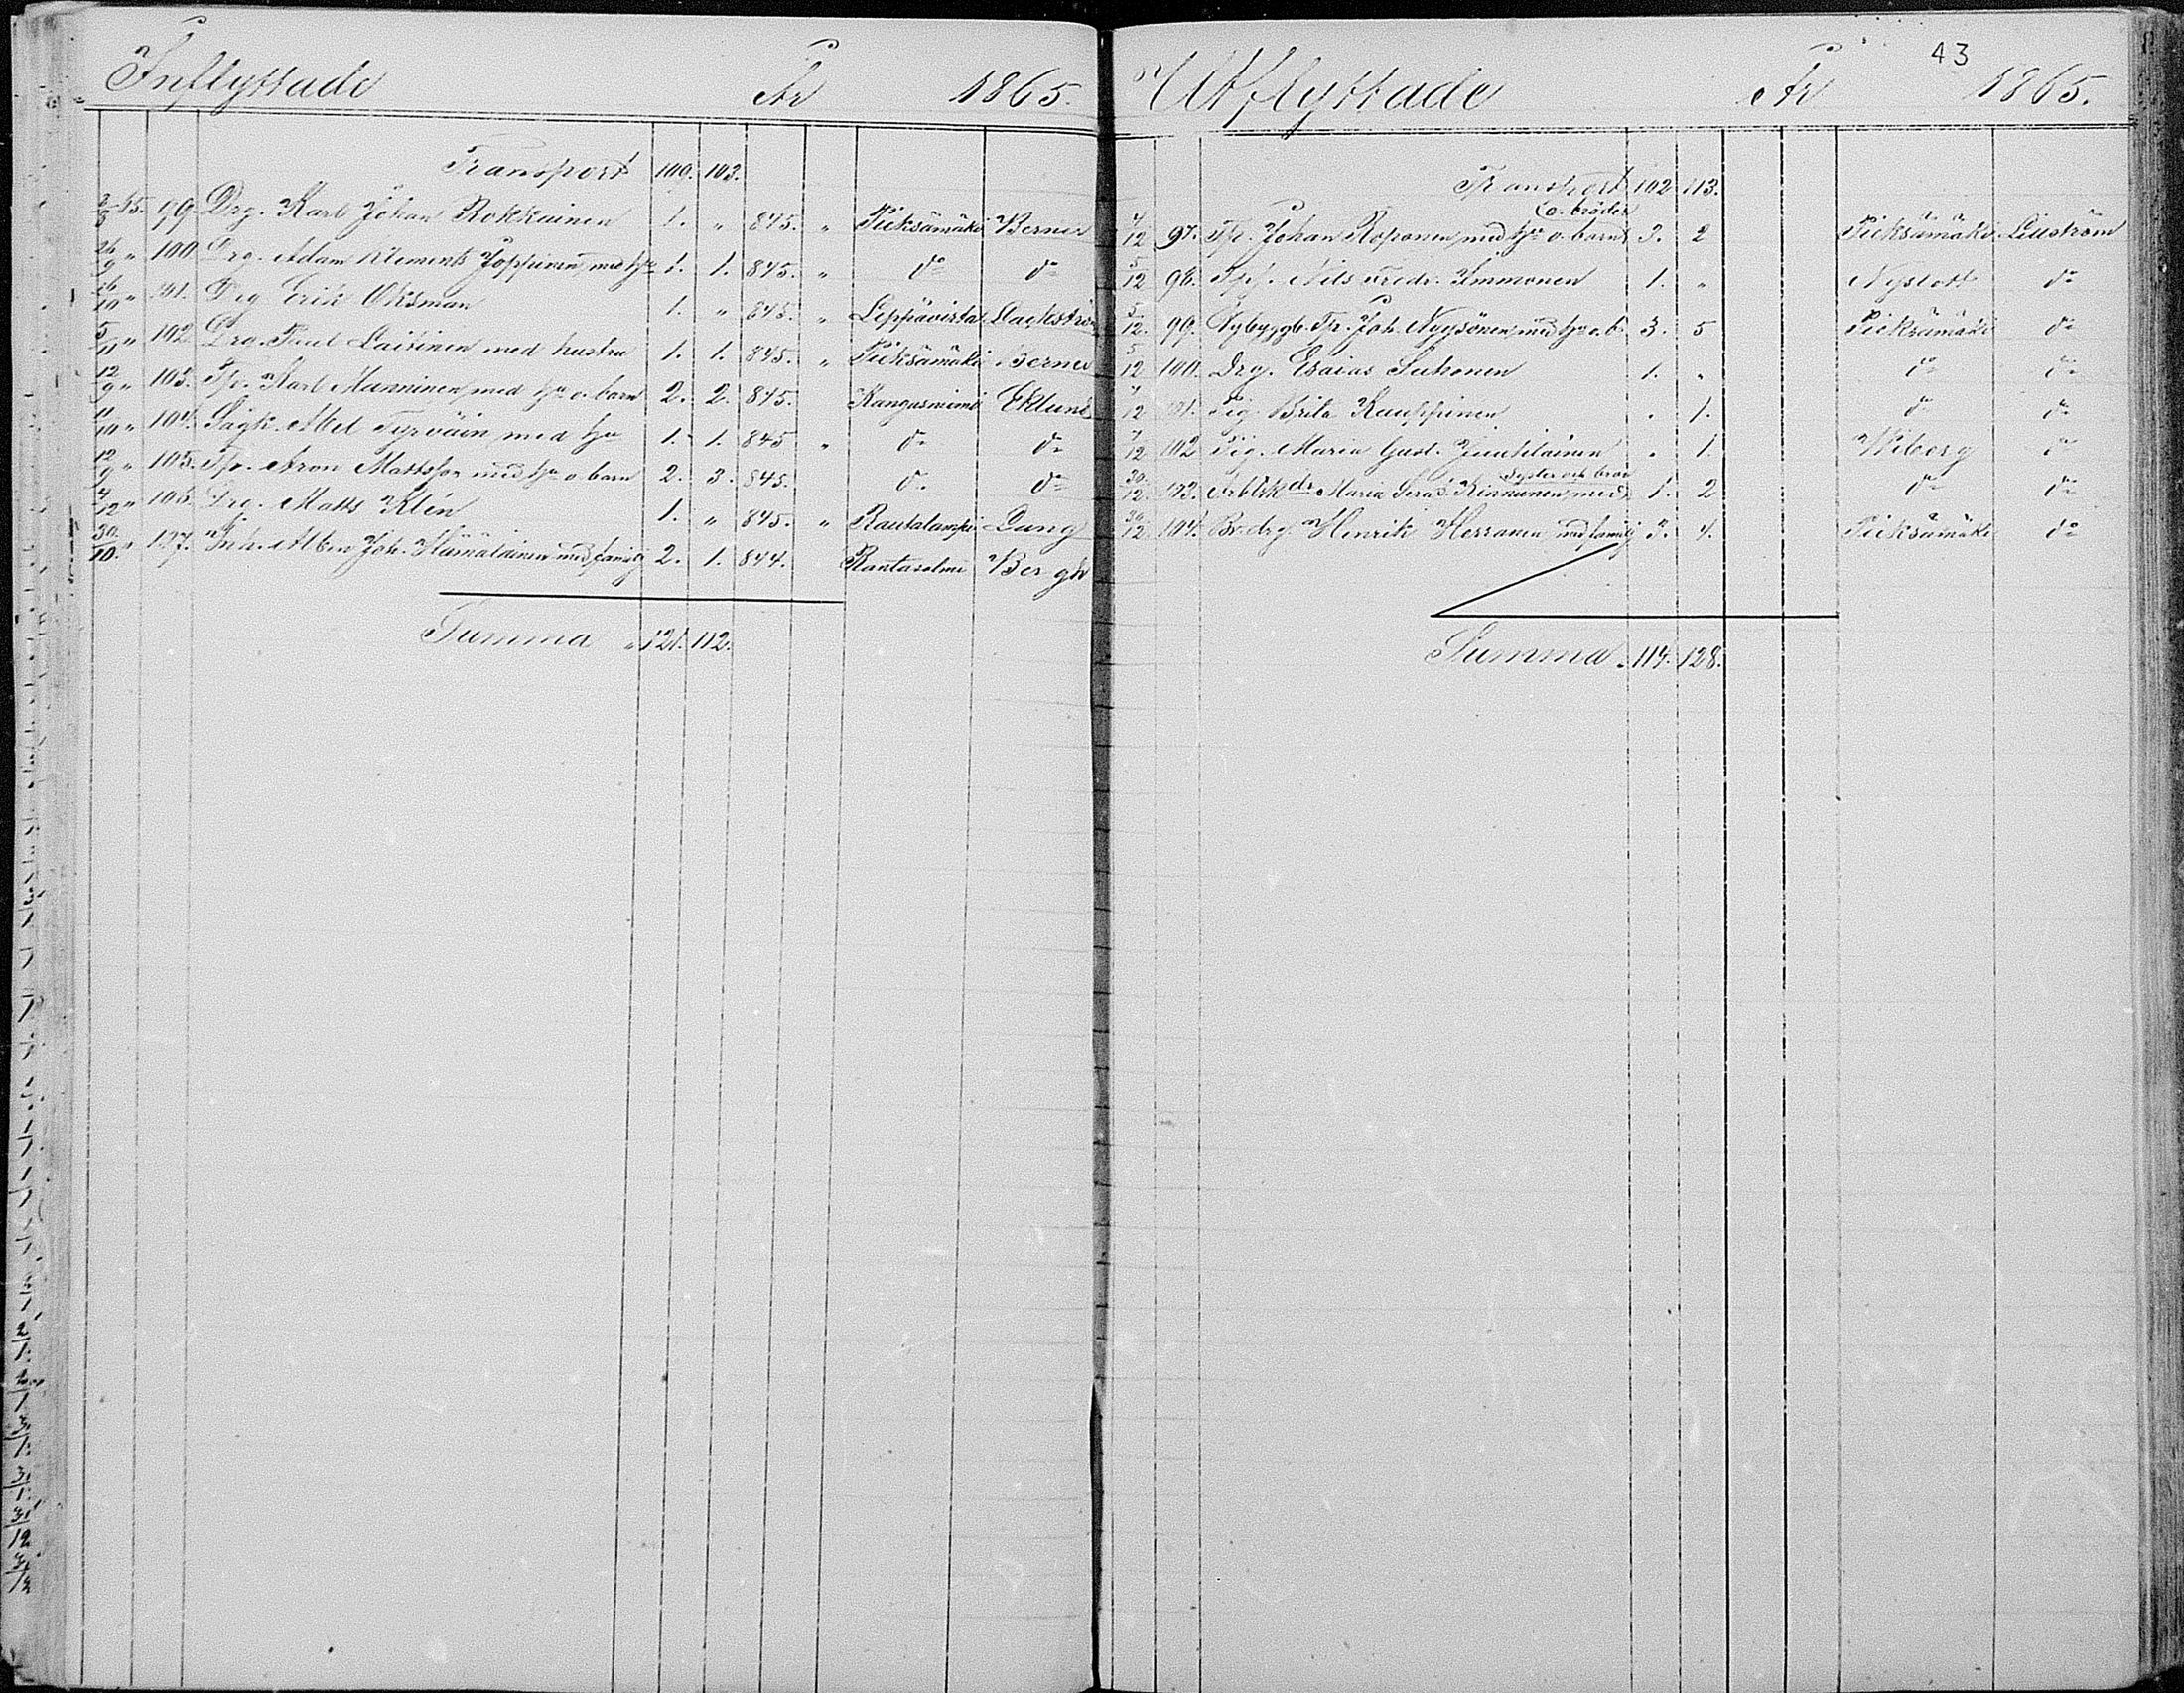 Inflyttade År 1865.
Transport 109. 103.
2/8 65. 99. Drg. Karl Johan Rokkainen 1. " 845. " Pieksämäki Berner
26/9 " 100. Drg. Adam Klements Joppinen med hu 1. 1. 845. " do do
26/10 " 101. Drg Erik Oksman 1. " 845. " Leppävirta Lackström
5/11 " 102 Drg. Paul Laitinen med hustru 1. 1. 845. " Pieksämäki Berner
12/9 " 103. Tp. Karl Manninen med hu o. barn 2. 2. 845. Kangasniemi Eklund
11/10 " 104. Abel Tyrväin med hu 1. 1. 845 " do do
12/9 " 105. Tp. Aron Mattsson med hu o barn 2. 3. 845. do do
4/12 " 106. Drg. Matts Klén 1. " 845. " Rautalampi Dung
30/10. " 107. Inh. Alben Joh. Hämäläinen med familj 2. 1. 844. Rantasalmi Bergh
Summa " 121. 112.
43
Utflyttade År 1865.
Transport 102 113.
o. bröder
4/12 97. Tp. Johan Roponen med hu o. barn 3. 2 Pieksämäki Liliström
5/12 98. Nils Fredr. Immonen 1. " Nyslott do
5/12. 99. Nybyggb. Joh. Nyyssönen med hu o. b. 3. 5 Pieksämäki do
5/12 100. Drg. Esaias Suhonen 1. " do do
7/12 101. Pig. Brita Kauppinen " 1. do do
7/12 102 Pig. Maria Gust. " 1. Wiborg do
Syster och bror
30/12. 103. Maria Kinnunen med 1. 2 do do
30/12 104. Henrik Herranen med familj 3. 4. Pieksämäki do
Summa . 114. 128.